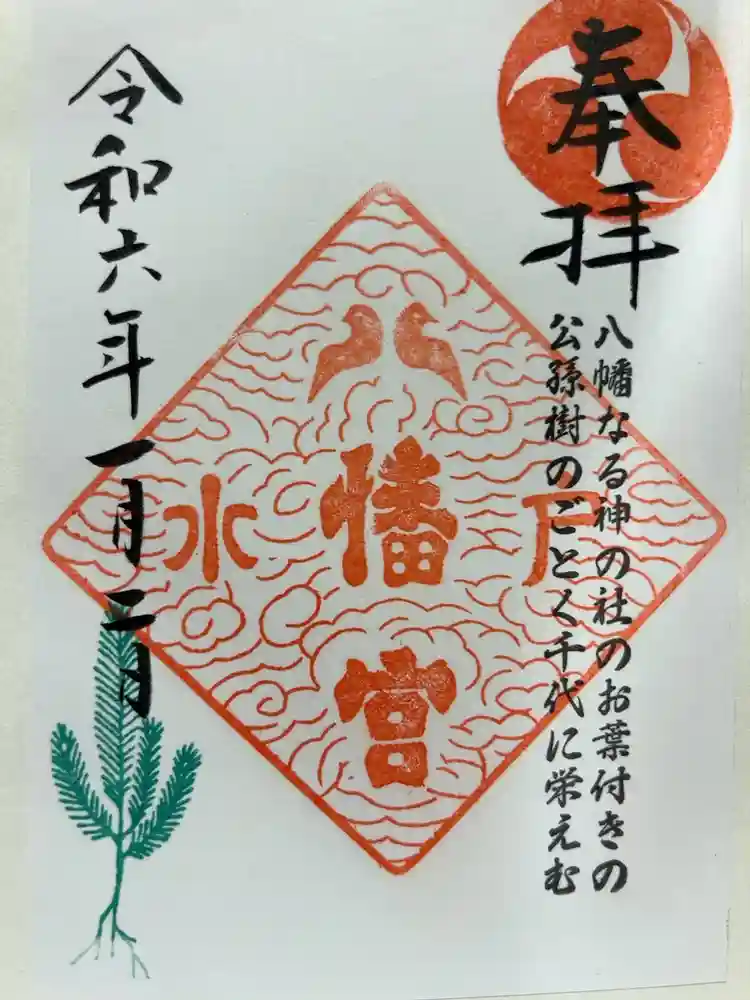 奉拝
八幡なる神の社のお葉付きの
公孫樹のごとく千代に栄えむ
水戸
幡宮
令和六年一月二日